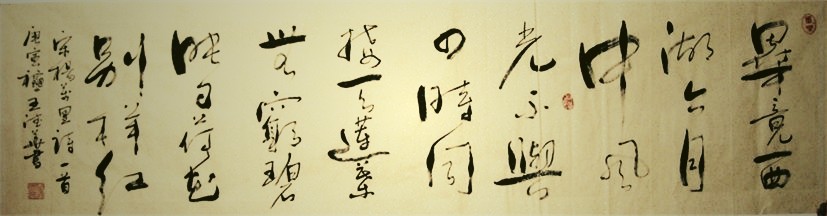 畢竟西
湖六月
中風
光不與
四時同
接天蓮葉
無窮碧
映日荷花
別樣紅
宋楊萬里詩一首
庚寅 王 書